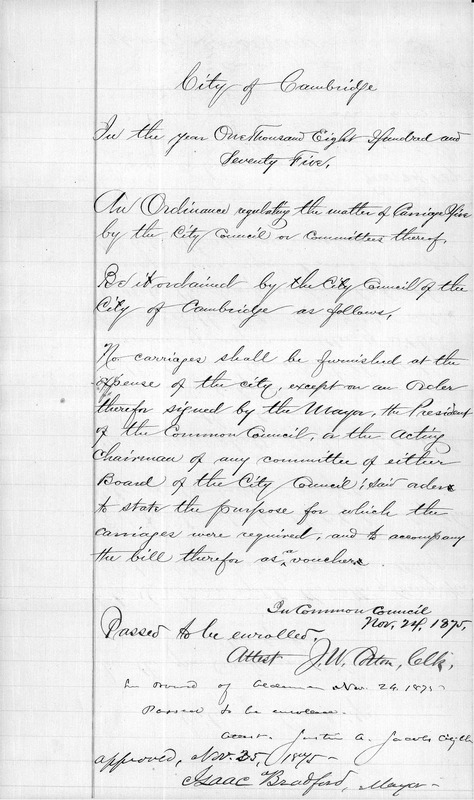 City of Cambridge
In the year One Thousand Eight Hundred and
Seventy Five,
An Ordinance regulating the matter of Carriage Hire
by the City Council or Committees thereof.
Be it ordained by the City Council of the
City of Cambridge as follows,
No carriages shall be furnished at the
expense of the city, except on an order
therefor signed by the Mayor, the President
of the Common Council, or the Acting
Chairman of any committee of either
Board of the City Council; said orders
to state the purpose for which the
carriages were required, and to accompany
the bill therefor as a voucher.
In Common Council
Nov. 24, 1875.
Passed to be enrolled.
Attest J. W. Cotton, Clk.
In Board of Aldermen Nov. 24. 1875
Passed to be
Attest. Justin A. Jacobs City Clk
approved, Nov. 25, 1875
Isaac Bradford, Mayor